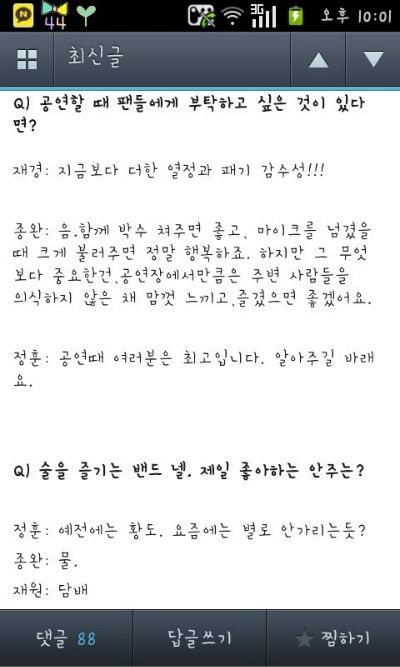 44 3G 오후 10:01
최신글
Q) 공연할 때 팬들에게 부탁하고 싶은 것이 있다
면?
재경: 지금보다 더한 열정과 패기 감수성!!!
종완: 음.함께 박수 쳐주면 좋고, 마이크를 넘겼을
때 크게 불러주면 정말 행복하죠. 하지만 그 무엇
보다 중요한건,공연장에서만큼은 주변 사람들을
의식하지 않은 채 맘껏 느끼고,즐겼으면 좋겠어요.
정훈: 공연때 여러분은 최고입니다. 알아주길 바래
요.
Q) 술을 즐기는 밴드 넬. 제일 좋아하는 안주는?
정훈: 예전에는 황도. 요즘에는 별로 안가리는듯?
종완: 물.
재원: 담배
댓글 88 답글쓰기 찜하기